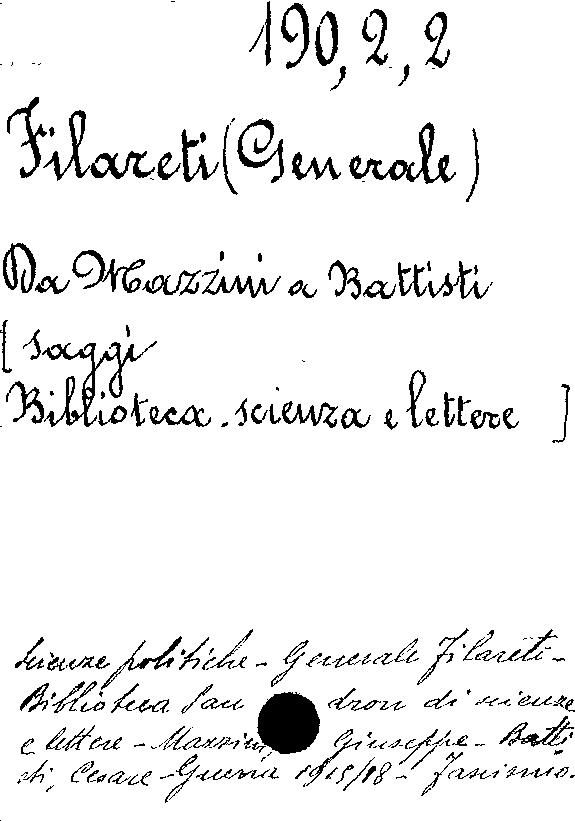 190,2,2
Filareti (Generale)
Da Mazzini a Battisti
[ saggi
Biblioteca . scienza e lettere ]
Scienze politiche - Generale Filareti -
Biblioteca San dron di scienze
e lettere - Mazzini, Giuseppe - Batti
sti, Cesare - Guerra 1915/18 - Fascismo.